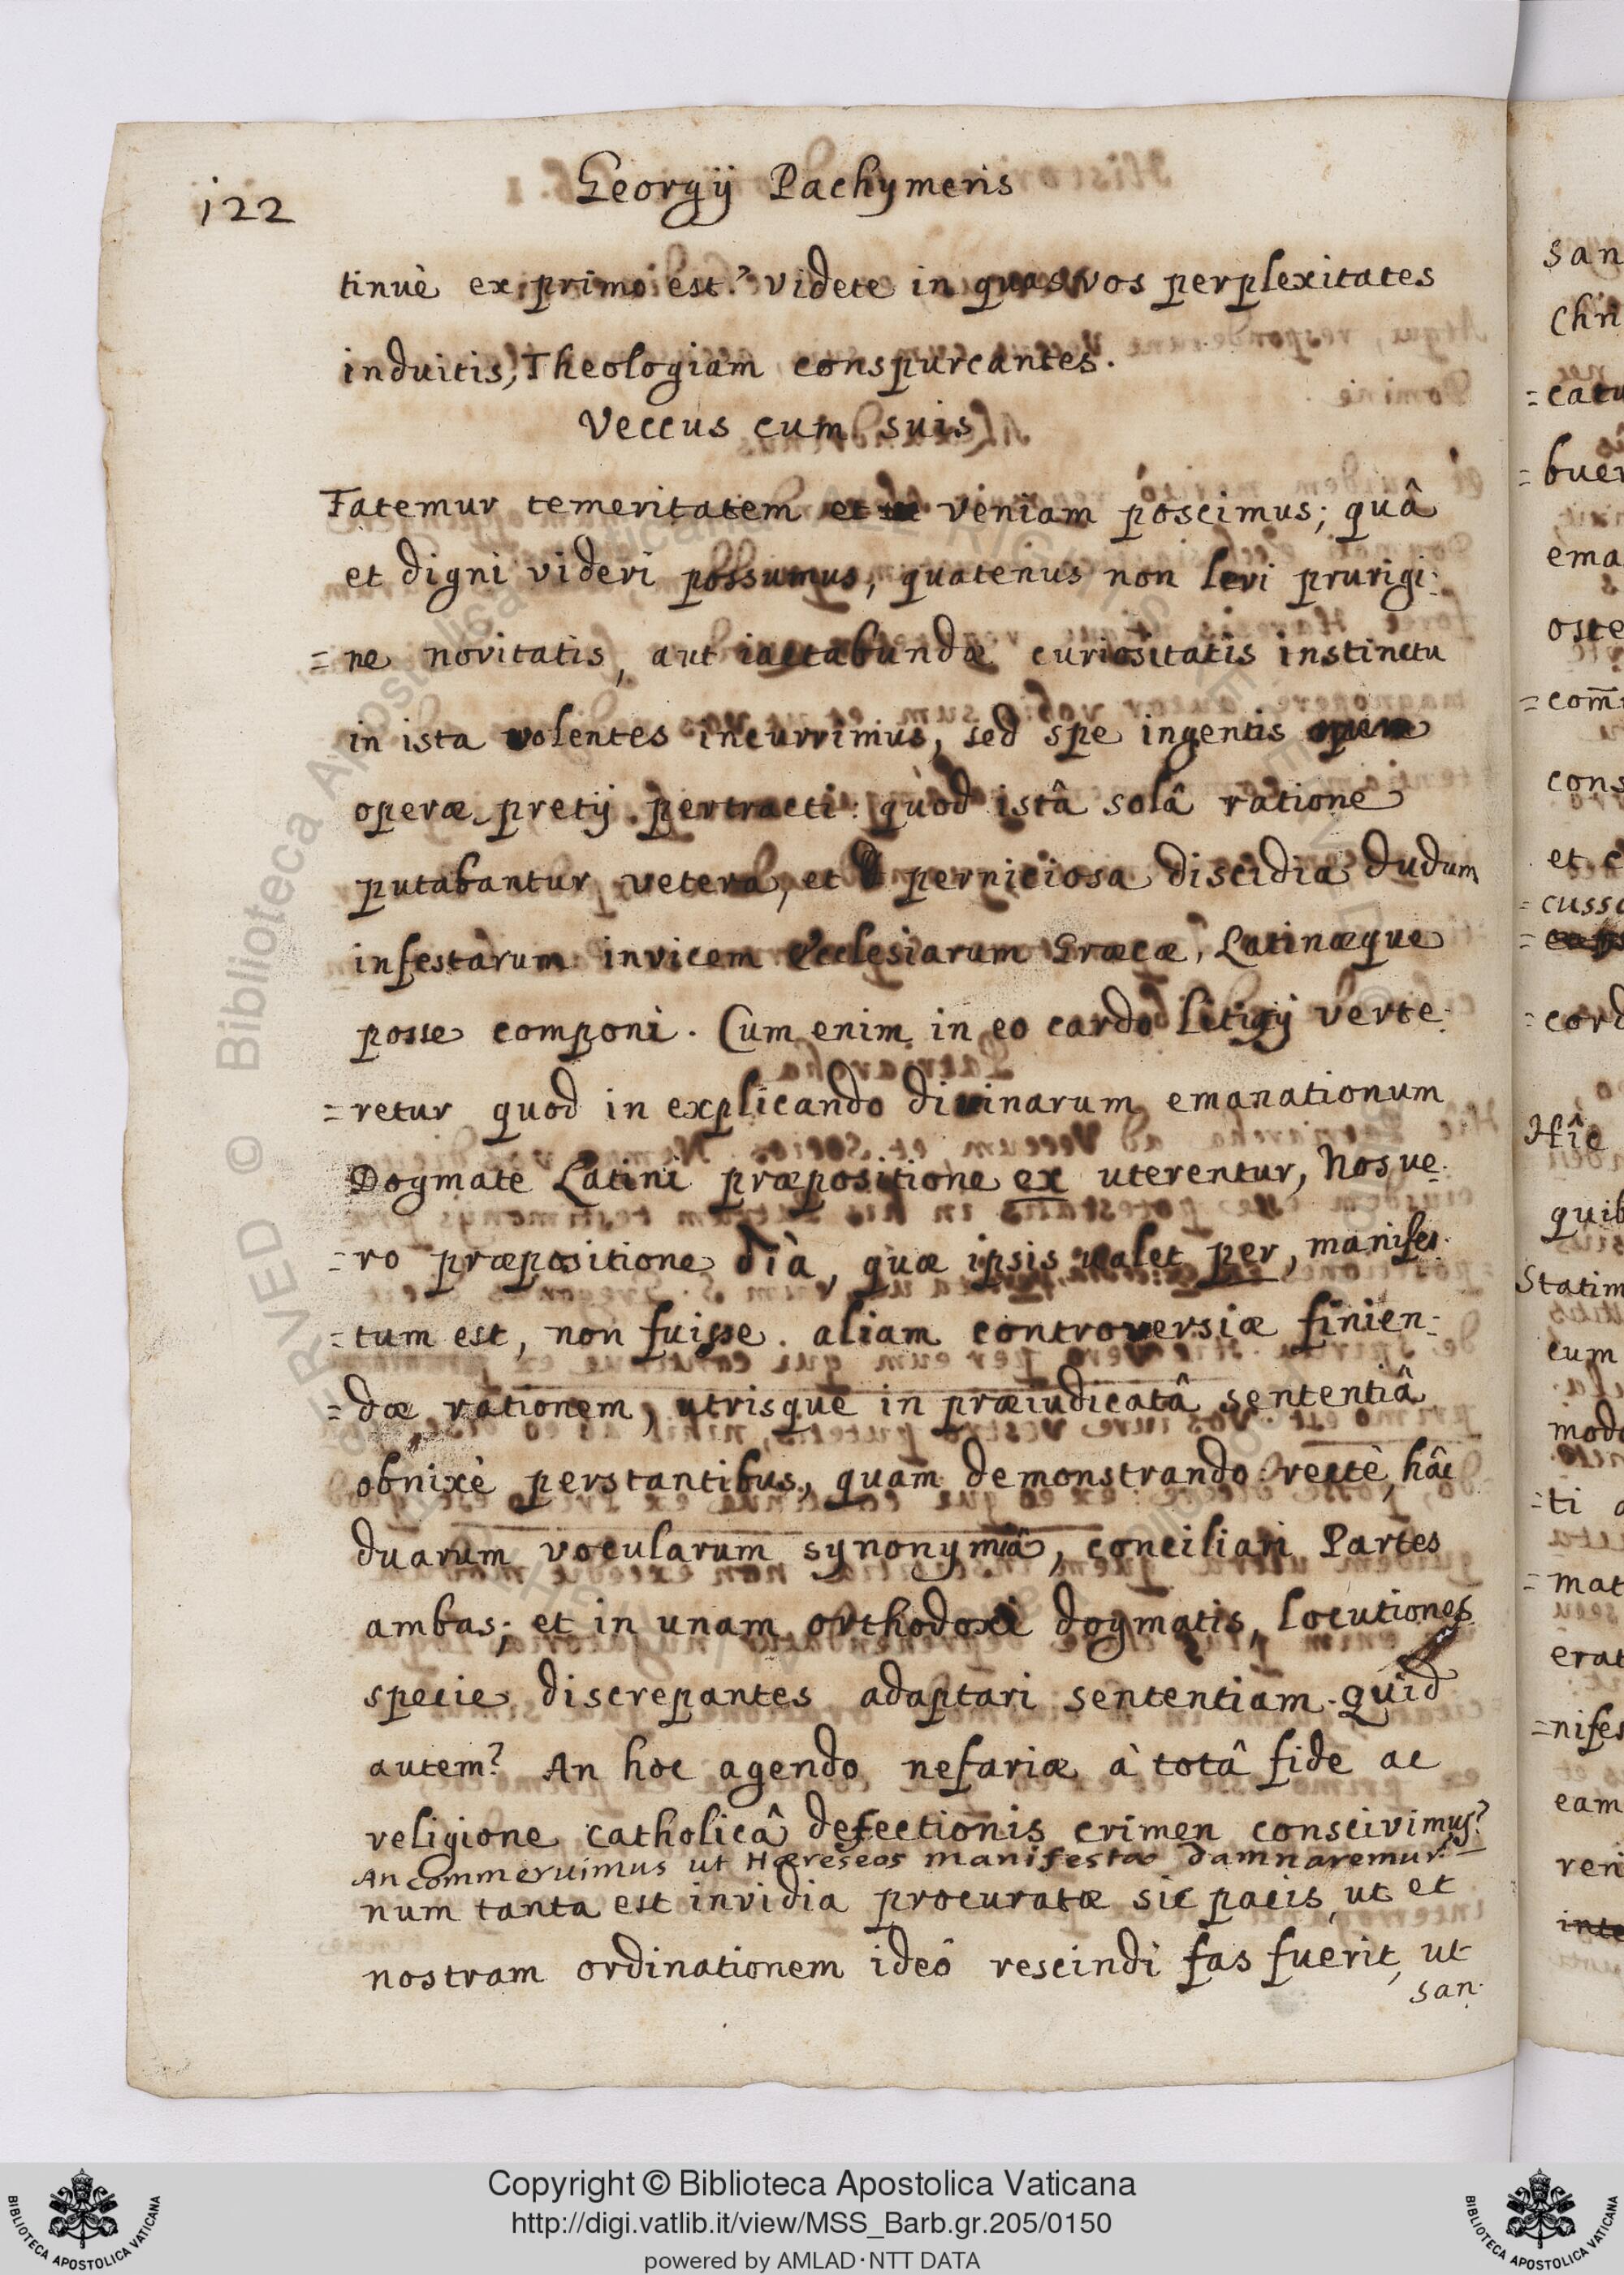 122
Georgij Pachymeris
tinuè ex primo est? videte in quas vos perplexitates
induitis, Theologiam conspurcantes.
Veccus cum suis
Fatemur temeritatem et veniam poscimus; quâ
et digni videri possumus, quatenus non levi prurigi:
= ne novitatis, aut iactabundæ curiositatis instinctu
in ista volentes incurrimus, sed spe ingentis
operæ pretij pertracti: quòd istâ solâ ratione
putabantur vetera, et perniciosa discidia dudum
infestarum invicem Ecclesiarum Græcæ, Latinæque
posse componi. Cum enim in eo cardo litigij verte:
= retur quod in explicando divinarum emanationum
Dogmate Latini præpositione ex uterentur, Nos ve:
= ro præpositione dià, quæ ipsis valet per, manifes:
= tum est, non fuisse aliam controversiæ finien:
= dæ rationem, utrisque in præiudicatâ sententiâ
obnixè perstantibus, quam demonstrando rectè, hâc
duarum vocularum synonymiâ, conciliari Partes
ambas; et in unam orthodoxi dogmatis, locutiones
specie discrepantes adaptari sententiam. Quid
autem? An hoc agendo nefariæ à totâ fide ac
religione catholicâ defectionis crimen conscivimus?
An commeruimus ut Hæreseos manifestæ damnaremur?
num tanta est invidia procuratæ sic pacis, ut et
nostram ordinationem ideô rescindi fas fuerit, ut
san:
san
Chri
= catu
= buer
ema
oste
= com̄
cons
et c
= cusso
= cord
Hîc
quib
Statim
cum
modo
= ti
= mat
erat
= nifes
eam
veri
inte
Copyright © Biblioteca Apostolica Vaticana
http://digi.vatlib.it/view/MSS_Barb.gr.205/0150
powered by AMLAD·NTT DATA
BIBLIOTECA APOSTOLICA VATICANA
BIBLIOTECA APOSTOLICA VATICANA